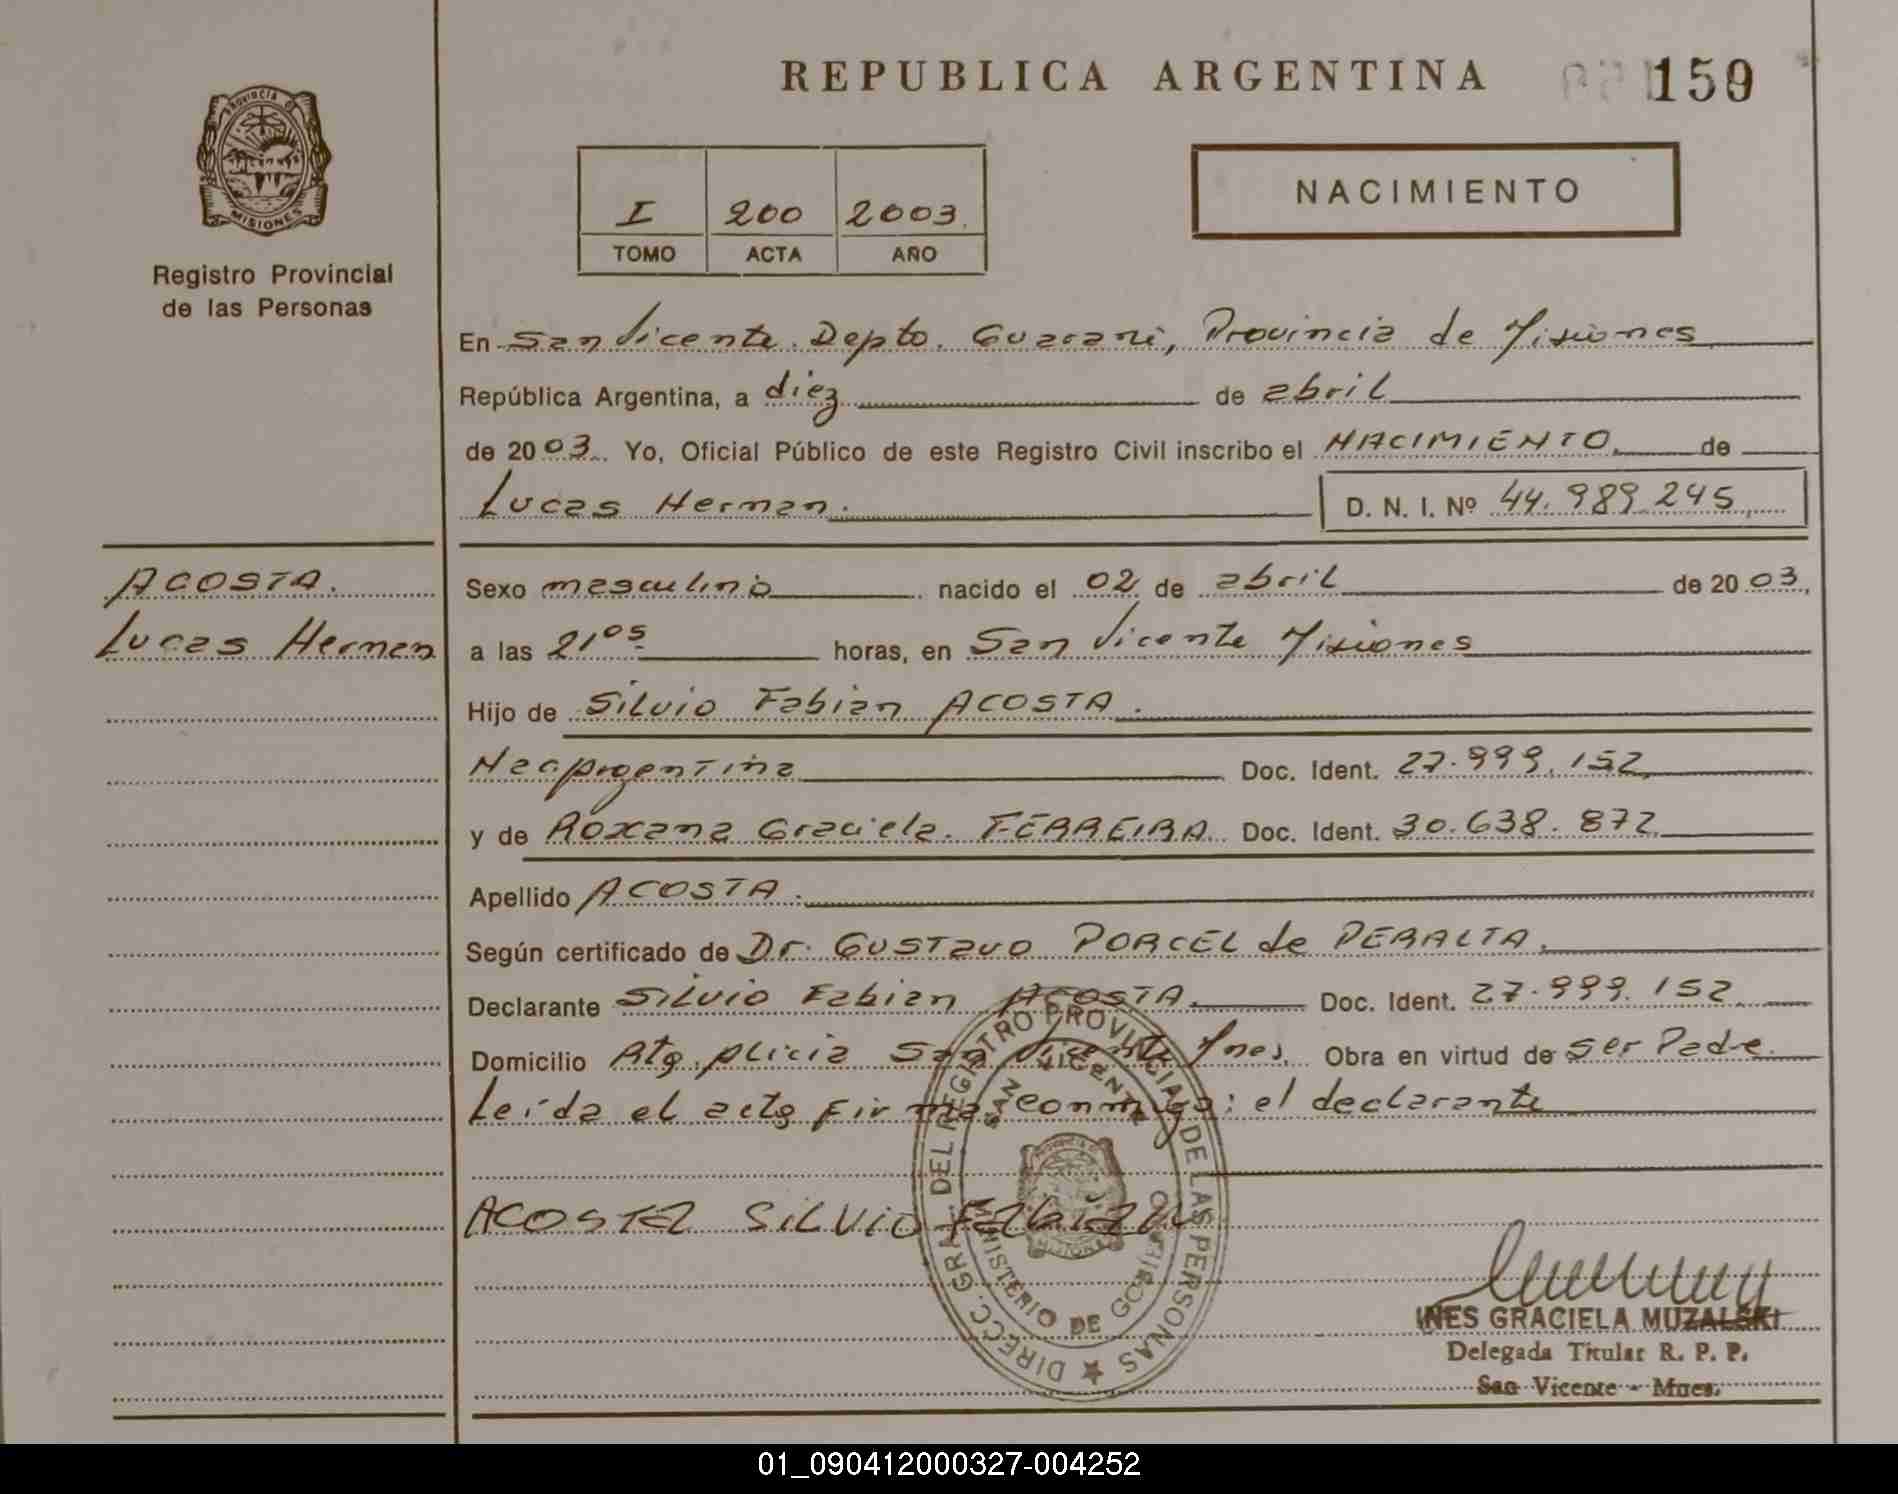 REPUBLICA ARGENTINA
159
PROVINCIA DE
MISIONES
Registro Provincial
de las Personas
I 200 2003.
TOMO ACTA AÑO
NACIMIENTO
En San Vicente. Depto. Guarani, Provincia de Misiones
República Argentina, a diez de abril
de 2003. Yo, Oficial Público de este Registro Civil inscribo el NACIMIENTO de
Lucas Hernan. D. N. I. Nº 44.989.245
ACOSTA.
Lucas Hernan
Sexo masculino nacido el 02 de abril de 2003,
a las 21 05 horas, en San Vicente Misiones
Hijo de Silvio Fabian ACOSTA.
Nac Argentina Doc. Ident. 27.999.152
y de Roxana Graciela. FERREIRA Doc. Ident. 30.638.872
Apellido ACOSTA.
Según certificado de Dr. GUSTavo PORCEL de PERALTA.
Declarante Silvio Fabian ACOSTA Doc. Ident. 27.999.152
Domicilio Atg. plicia San Vicente Mnes. Obra en virtud de ser Padre
Leída el acta firma conmigo: el declarante
ACOSTA SILViO FABIAN
DIRECC. GRAL. DEL REGISTRO PROVINCIAL DE LAS PERSONAS
SAN VICENTE
MINISTERIO DE GOBIERNO
MISIONES
INES GRACIELA MUZALSKI
Delegada Titular R. P. P.
San Vicente - Mnes.
01_090412000327-004252